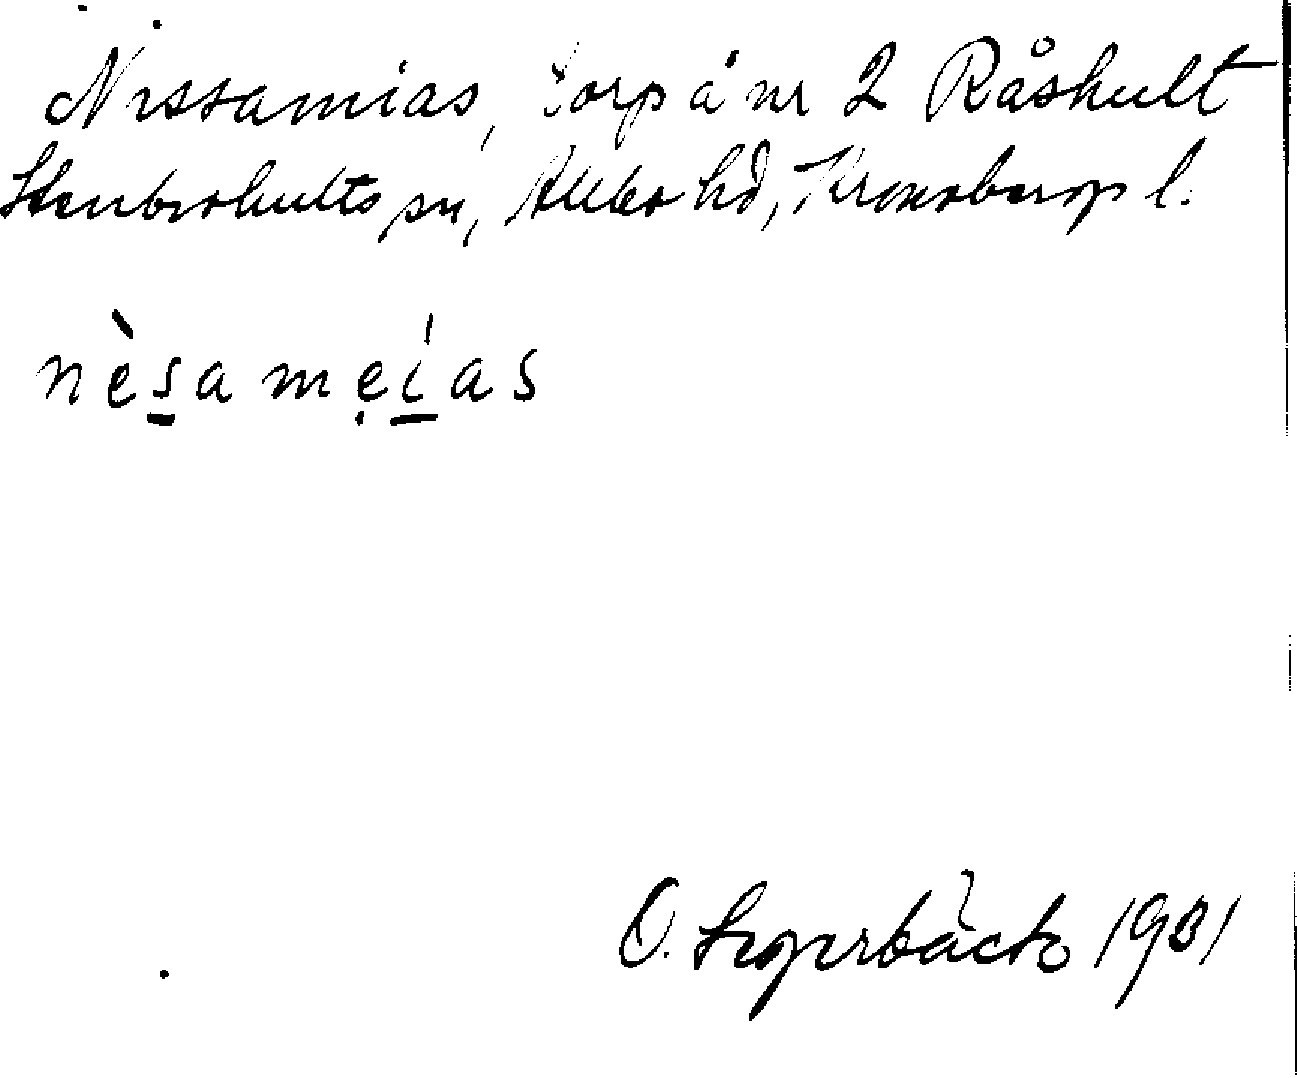 Nissamias, torp å nr 2 Råshult
Stenbrohults sn, Allbo hd, Kronobergs l.
nès̱amẹí̱as
O. Segerbäck 1931